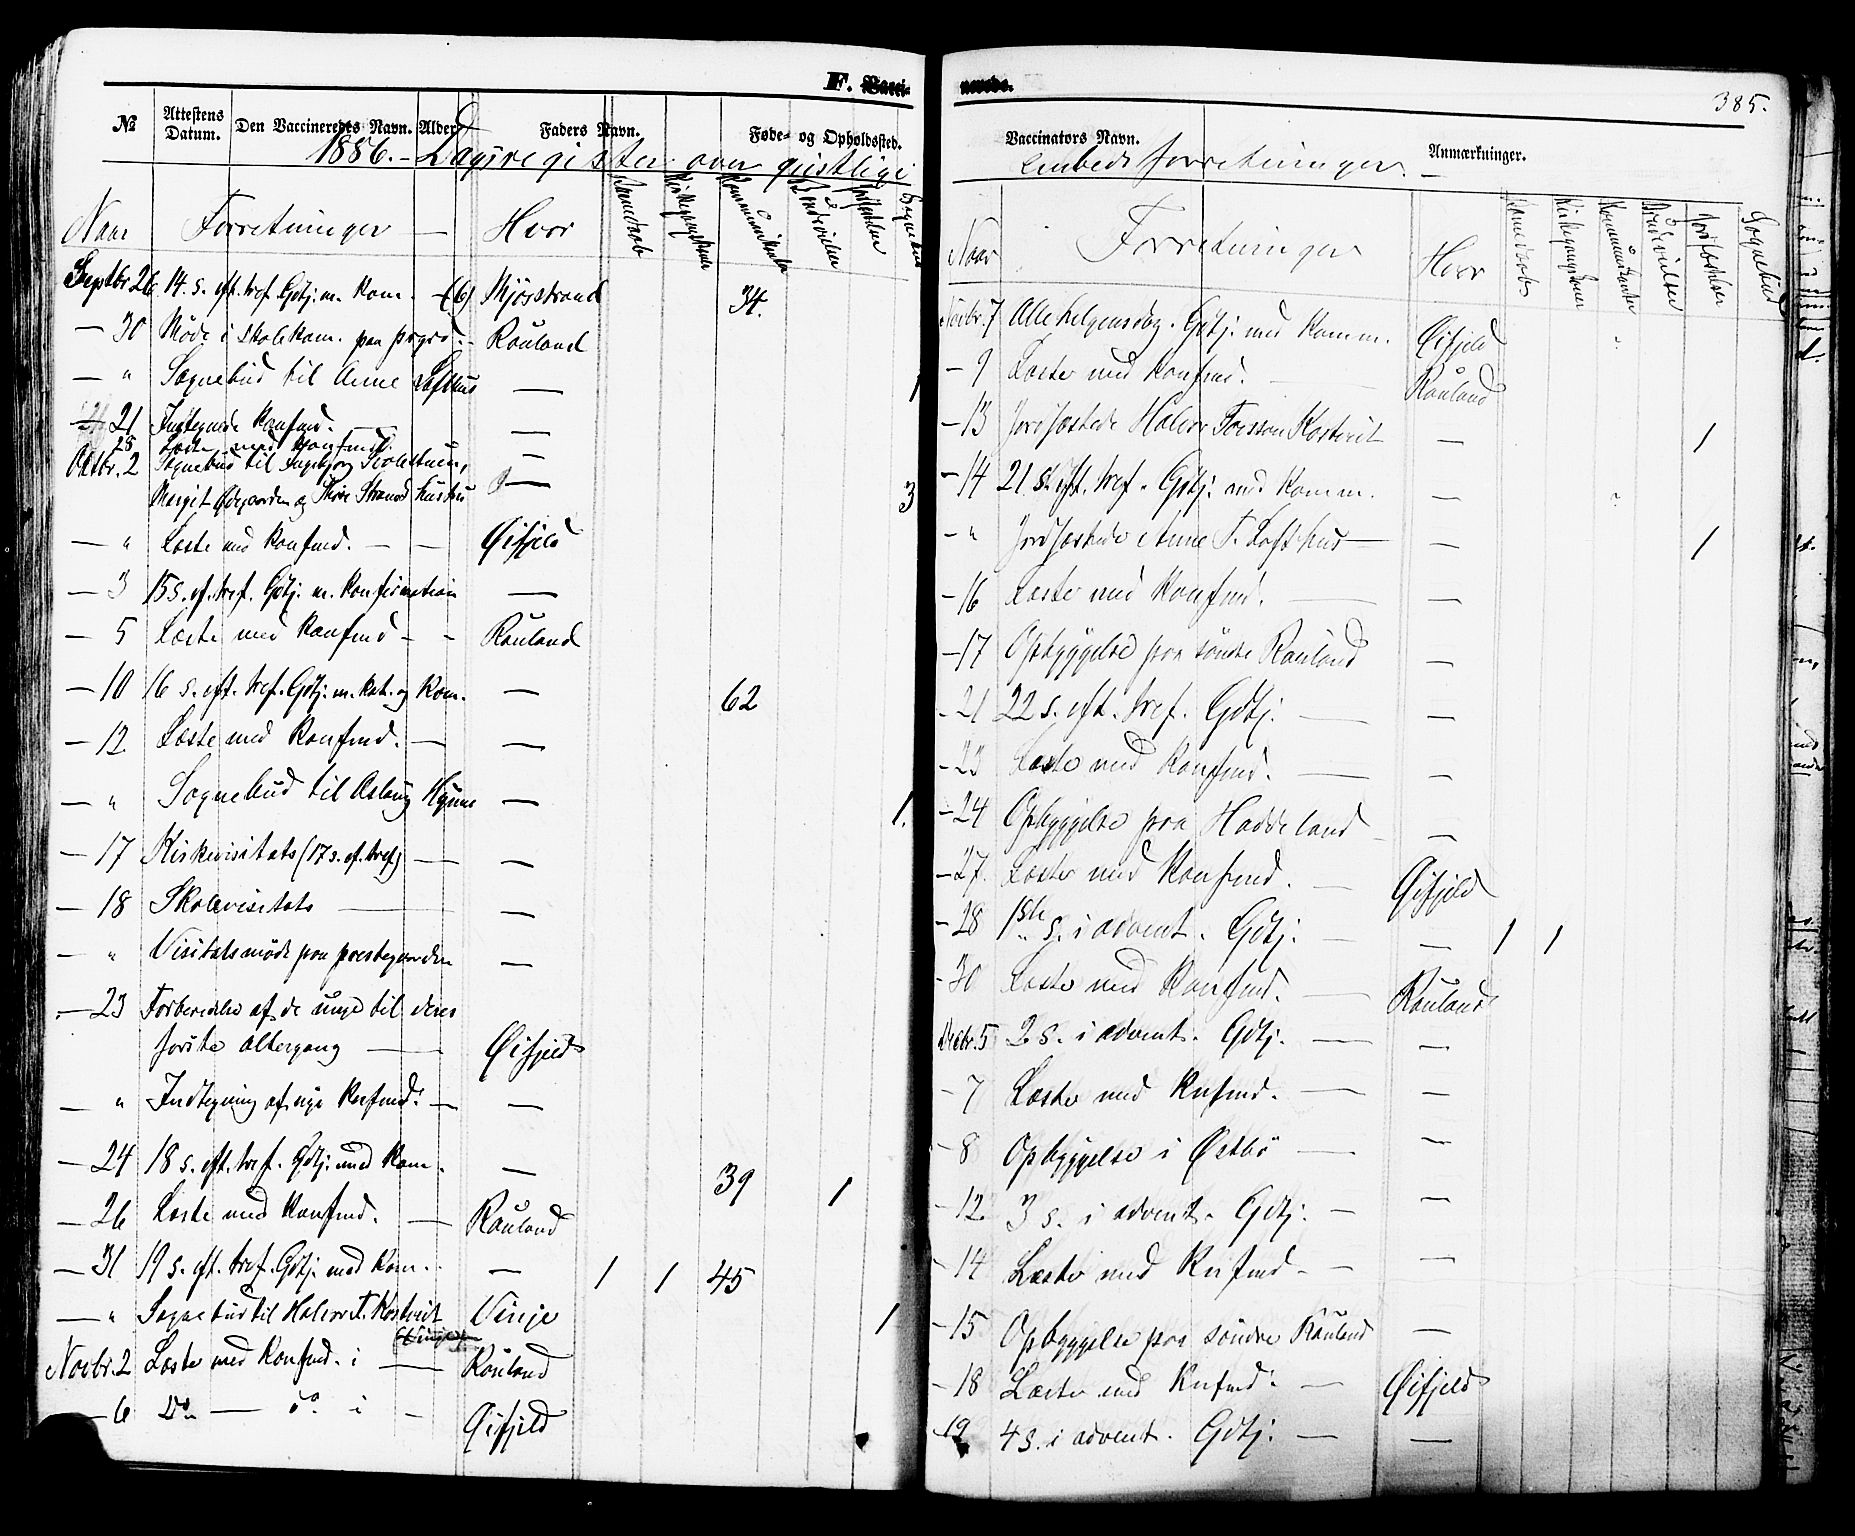 F. Vacci-
№ Attestens Datum. Den Vaccineredes Navn. Alder. Faders Navn. Føde- og Opholdssted.
1886. - Dagsregister over geistlige
Naar Forretninger — Hvor Barnedaab Kirkegangskoner Kommunikanter Brudevielser Jordfæstelser Sognebud
Septbr. 26 14. s. eft. tref. Gdtj. m. Kom. - (6) Mjosstrand 34.
— 30 Møde i Skolekom. paa prgrd. - Rauland
— " Sognebud til Anne Lofthus — 1
— 21 Indtegnede Konfmd. —
28 Læste med Konfmd. —
Oktbr. 2 Sognebud til Ingebjørg
Margit Øigaarden og Thore Strand — 3
— " Læste med Konfmd. — — Øifjeld
— 3 15 s. ef. tref. Gdtj. m. Konfirmation —
— 5 Læste med Konfmd - - Rauland
— 10 16 s. eft. tref. Gdtj. m. Kat. og Kom. — 62
— 12 Læste med Konfmd. — —
— " Sognebud til Aslaug — 1.
— 17 Kirkevisitats (17 s. ef. tref.) — —
— 18 Skolevisitats — —
— " Visitatsmøde paa prestegaarden —
— 23 Forberedelse af de unge til deres
første altergang — Øifjeld
— " Indtegning af nye Knfmd. — —
— 24 18 s. eft. tref. Gdtj. med Kom. — 39 1
— 26 Læste med Konfmd. — Rauland
— 31 19 s. eft. tref. Gdtj. med Kom. — 1 1 45
— " Sognebud til Halvor T. Kostveit Vinje 1
(Vinje)
Novbr. 2 Læste med Konfmd. i — Rauland
— 6 Do — do i - Øifjeld
nerede.
385.
Vaccinators Navn. Anmærkninger.
Embedsforretninger. —
Naar Forretninger Hvor Barnedaab Kirkegangskoner Kommunikanter Brudevielser Jordfæstelser Sognebud
Novbr. 7 Allehelgensdag. Gdtj. med Komm. Øifjeld
- 9 Læste med Konfmd. Rauland
- 13 Jordfæstede Halvor Torsson Kostveit — 1
- 14 21 s. eft. tref. Gdtj. med Komm. —
- " Jordfæstede Anne T. Lofthus — — 1
- 16 Læste med Konfmd. — —
- 17 Opbyggelse paa søndre Rauland —
- 21 22 s. eft. tref. Gdtj. — —
- 23 Læste med Konfmd. — —
- 24 Opbyggelse paa Haddeland - —
- 27. Læste med Konfmd. — Øifjeld
- 28 1ste s. i advent. Gdtj. — — 1 1
- 30 Læste med Konfmd. — Rauland
Decbr. 5 2 s. i advent. Gdtj. — —
- 7 Læste med Knfmd. — —
- 8 Opbyggelse i Østbø — —
- 12. 3 s. i advent. Gdtj. — —
- 14 Læste med Knfmd - — —
- 15 Opbyggelse paa søndre Rauland —
- 18 Læste med Knfmd. — Øifjeld
- 19 4 s. i advent. Gdtj: — —